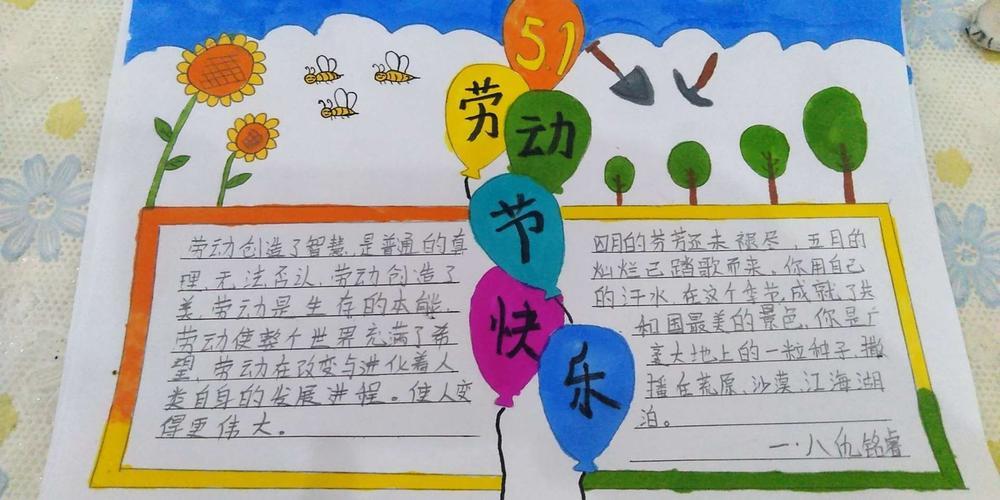 5.1
劳动
节
快
乐
劳动创造了智慧,是普通的真
理,无法否认,劳动创造了
美,劳动是生存的本能,
劳动使整个世界充满了希
望,劳动在改变与进化着人
类自身的发展进程。使人变
得更伟大。
四月的芬芳还未褪尽,五月的
灿烂已踏歌而来,你用自己
的汗水,在这个季节,成就了共
和国最美的景色,你是广
大地上的一粒种子,撒
播在荒原、沙漠、江海湖
泊。
一·八仇铭睿